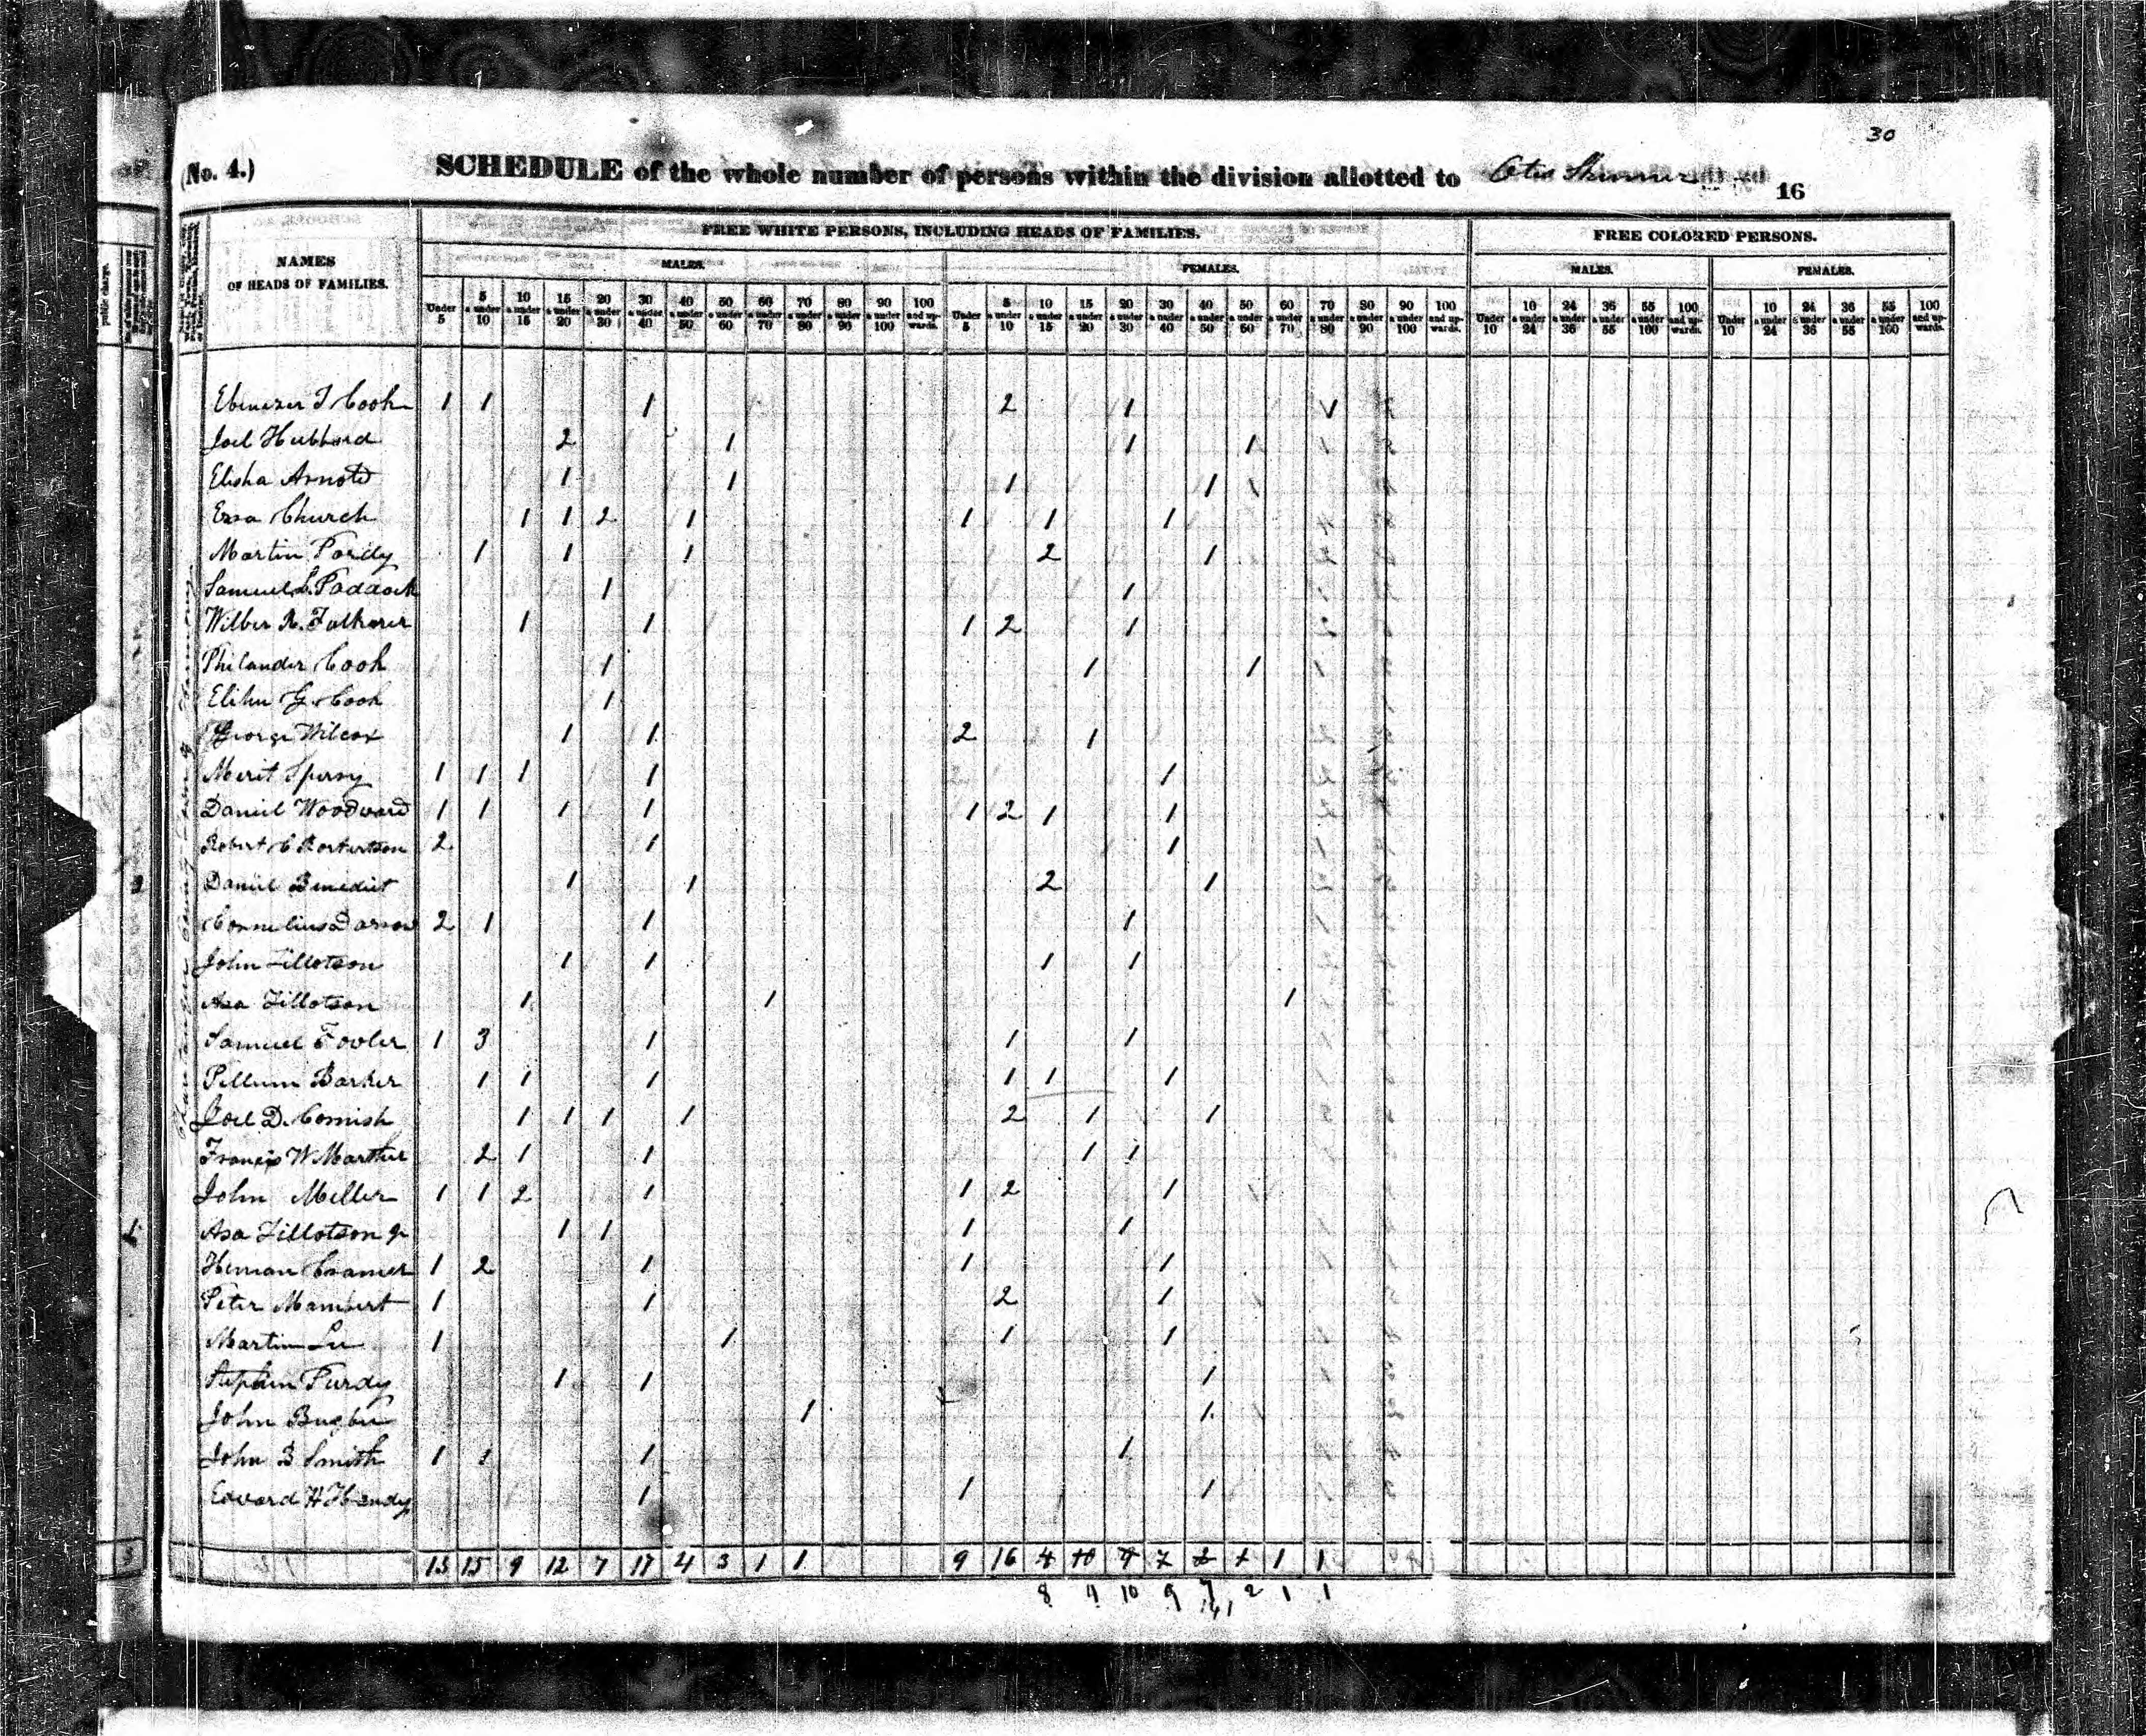 30
(No. 4.) SCHEDULE of the whole number of persons within the division allotted to Otis Skinner 16
FREE WHITE PERSONS, INCLUDING HEADS OF FAMILIES. FREE COLORED PERSONS.
NAMES OF HEADS OF FAMILIES.
MALES. FEMALES. MALES. FEMALES.
Under 5 | 5 & under 10 | 10 & under 15 | 15 & under 20 | 20 & under 30 | 30 & under 40 | 40 & under 50 | 50 & under 60 | 60 & under 70 | 70 & under 80 | 80 & under 90 | 90 & under 100 | 100 and upwards. | Under 5 | 5 & under 10 | 10 & under 15 | 15 & under 20 | 20 & under 30 | 30 & under 40 | 40 & under 50 | 50 & under 60 | 60 & under 70 | 70 & under 80 | 80 & under 90 | 90 & under 100 | 100 and upwards. | Under 10 | 10 & under 24 | 24 & under 36 | 36 & under 55 | 55 & under 100 | 100 and upwards. | Under 10 | 10 & under 24 | 24 & under 36 | 36 & under 55 | 55 & under 100 | 100 and upwards.
Ebenezer T Cook 1 1 1 2 1 1
Joel Hubbard 2 1 1 1
Elisha Arnold 1 1 1 1
Ezra Church 1 1 2 1 1 1 1
Martin Pardy 1 1 1 2 1
Samuel L. Paddock 1 1
Wilber R. 1 1 1 2 1
Philander Cook 1 1 1
Elihu G. Cook 1
George Wilcox 1 1 2 1
Merit Spersy 1 1 1 1 1
Daniel Woodward 1 1 1 1 1 2 1 1
Robert C Robertson 2 1 1
Daniel Benedict 1 1 2 1
Cornelius Darrow 2 1 1 1
John Tillotson 1 1 1 1
Asa Tillotson 1 1 1
Samuel Fowler 1 3 1 1 1
Pellum Barker 1 1 1 1 1 1
Joel D. Cornish 1 1 1 1 2 1 1
Francis W Marther 2 1 1 1 1
John Miller 1 1 2 1 1 2 1
Asa Tillotson Jr 1 1 1 1
Heman Cramer 1 2 1 1 1
Peter Mambert 1 1 2 1
Martin Lee 1 1 1 1
Stephen Purdy 1 1 1
John Bugbee 1 1
John B Smith 1 1 1 1
Edward H Handy 1 1 1
13 15 9 12 7 17 4 3 1 1 9 16 4 10 9 7 1 1 1
8 4 10 9 7 2 1 1
141